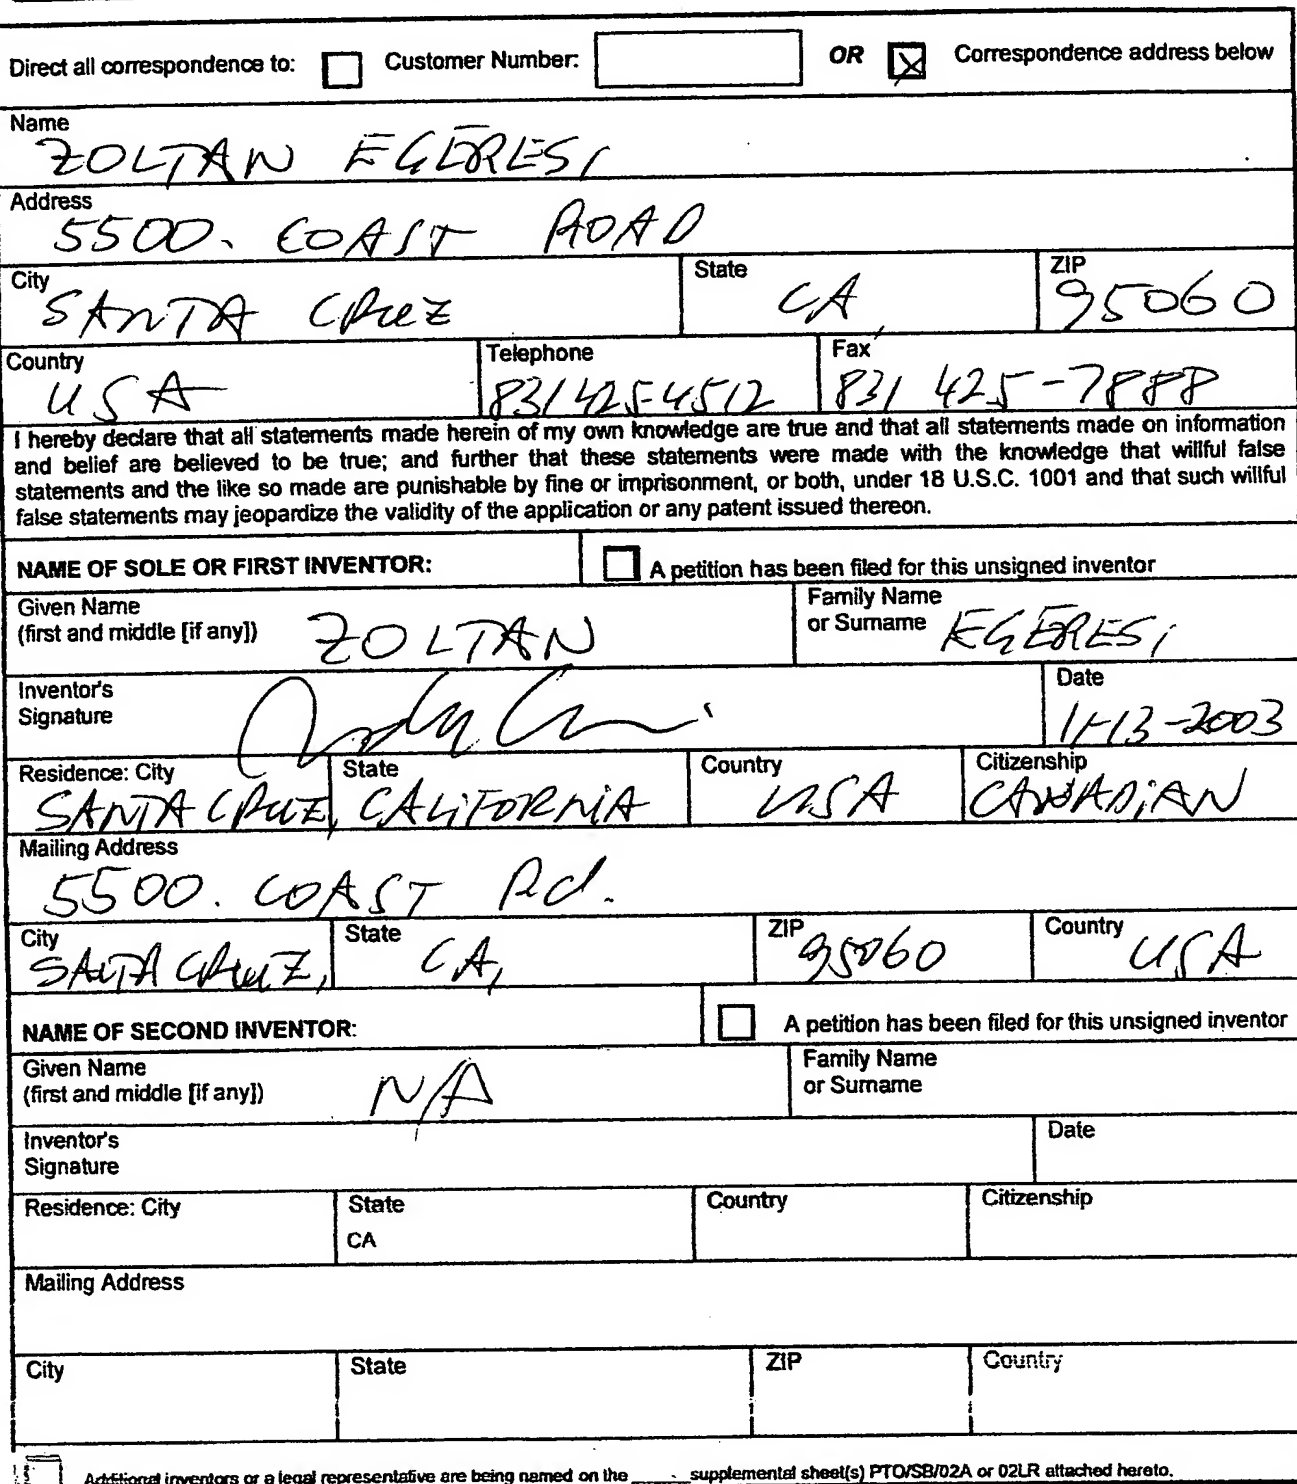 Direct all correspondence to: Customer Number: OR Correspondence address below
Name
ZOLTAN EGERESI
Address
5500. COAST ROAD
City State ZIP
SANTA CRUZ CA 95060
Country Telephone Fax
USA 831 425-4512 831 425-7888
I hereby declare that all statements made herein of my own knowledge are true and that all statements made on information
and belief are believed to be true; and further that these statements were made with the knowledge that willful false
statements and the like so made are punishable by fine or imprisonment, or both, under 18 U.S.C. 1001 and that such willful
false statements may jeopardize the validity of the application or any patent issued thereon.
NAME OF SOLE OR FIRST INVENTOR: A petition has been filed for this unsigned inventor
Given Name Family Name
(first and middle [if any]) ZOLTAN or Surname EGERESI
Inventor's Date
Signature 11-13-2003
Residence: City State Country Citizenship
SANTA CRUZ, CALIFORNIA USA CANADIAN
Mailing Address
5500. COAST Rd.
City State ZIP Country
SANTA CRUZ, CA, 95060 USA
NAME OF SECOND INVENTOR: A petition has been filed for this unsigned inventor
Given Name Family Name
(first and middle [if any]) N/A or Surname
Inventor's Date
Signature
Residence: City State Country Citizenship
CA
Mailing Address
City State ZIP Country
Additional inventors or a legal representative are being named on the supplemental sheet(s) PTO/SB/02A or 02LR attached hereto.